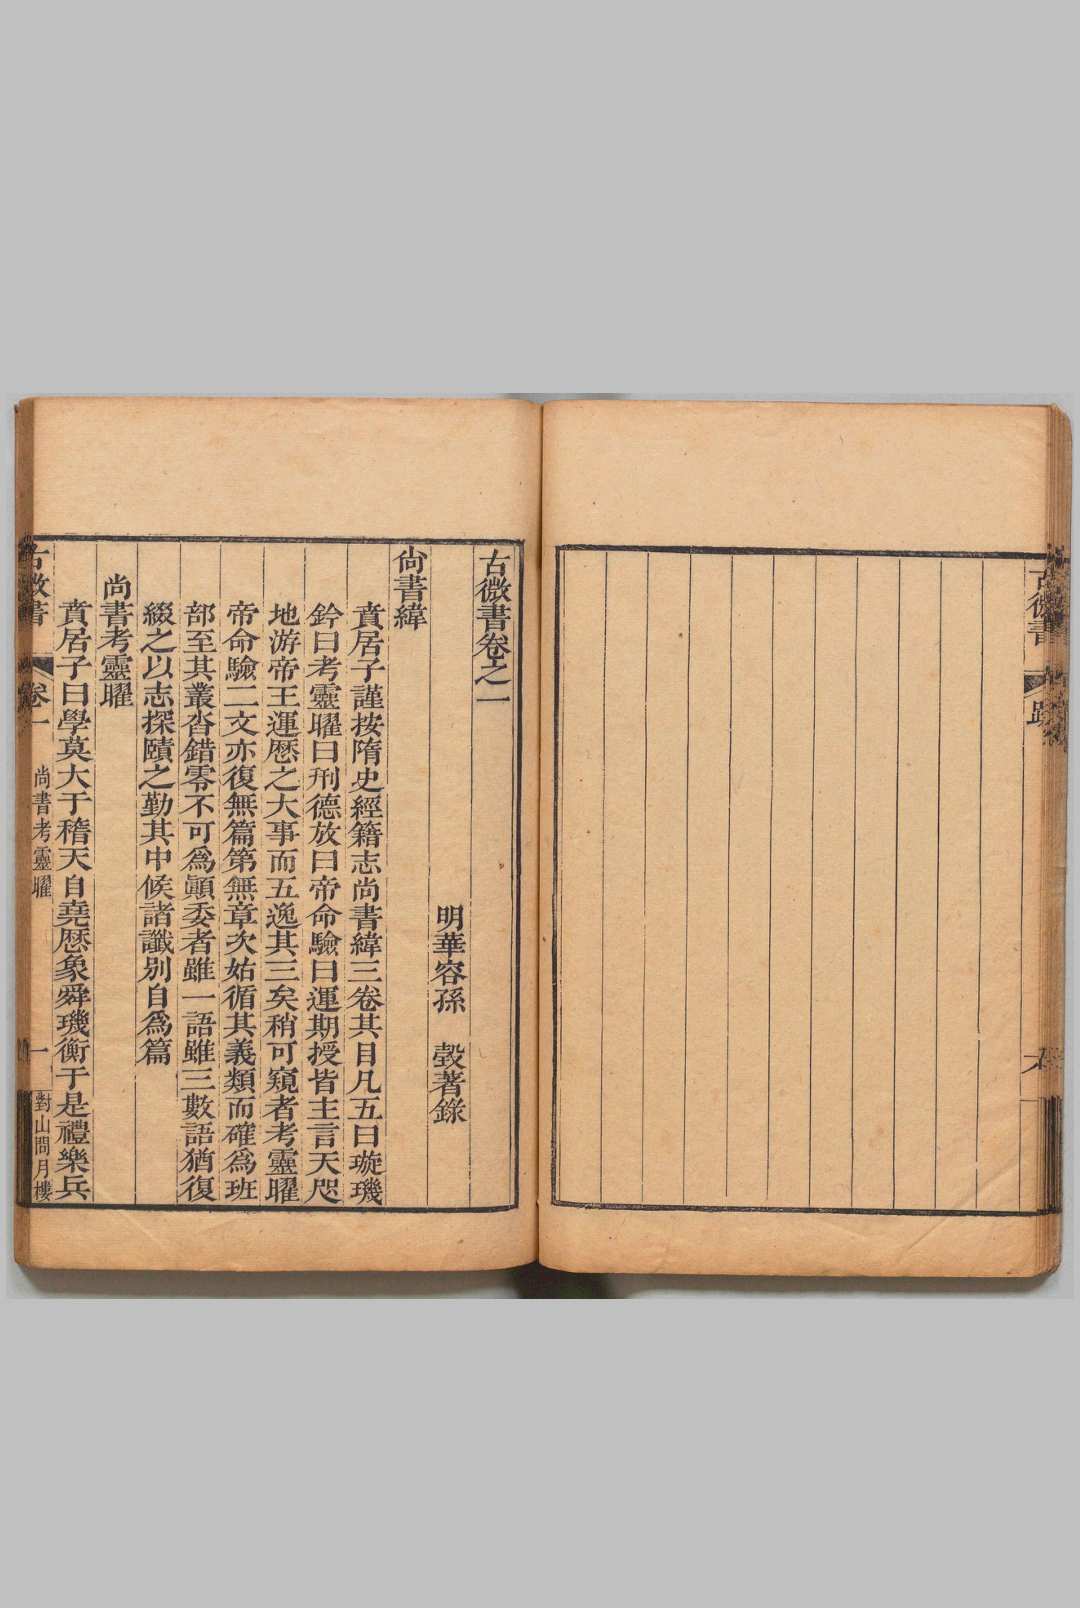 古微書
跋
六
古微書卷之一
明華容孫　瑴著錄
尚書緯
賁居子謹按隋史經籍志尚書緯三卷其目凡五曰璇璣
鈐曰考靈曜曰刑德放曰帝命驗曰運期授皆主言天咫
地游帝王運歷之大事而五逸其三矣稍可窺者考靈曜
帝命驗二文亦復無篇第無章次始循其義類而確爲班
部至其叢沓錯零不可爲顚委者雖一語雖三數語猶復
綴之以志探賾之勤其中候諸讖別自爲篇
尚書考靈曜
賁居子曰學莫大于稽天自堯歷象舜璣衡于是禮樂兵
古微書
卷一
尚書考靈曜
一
對山問月樓